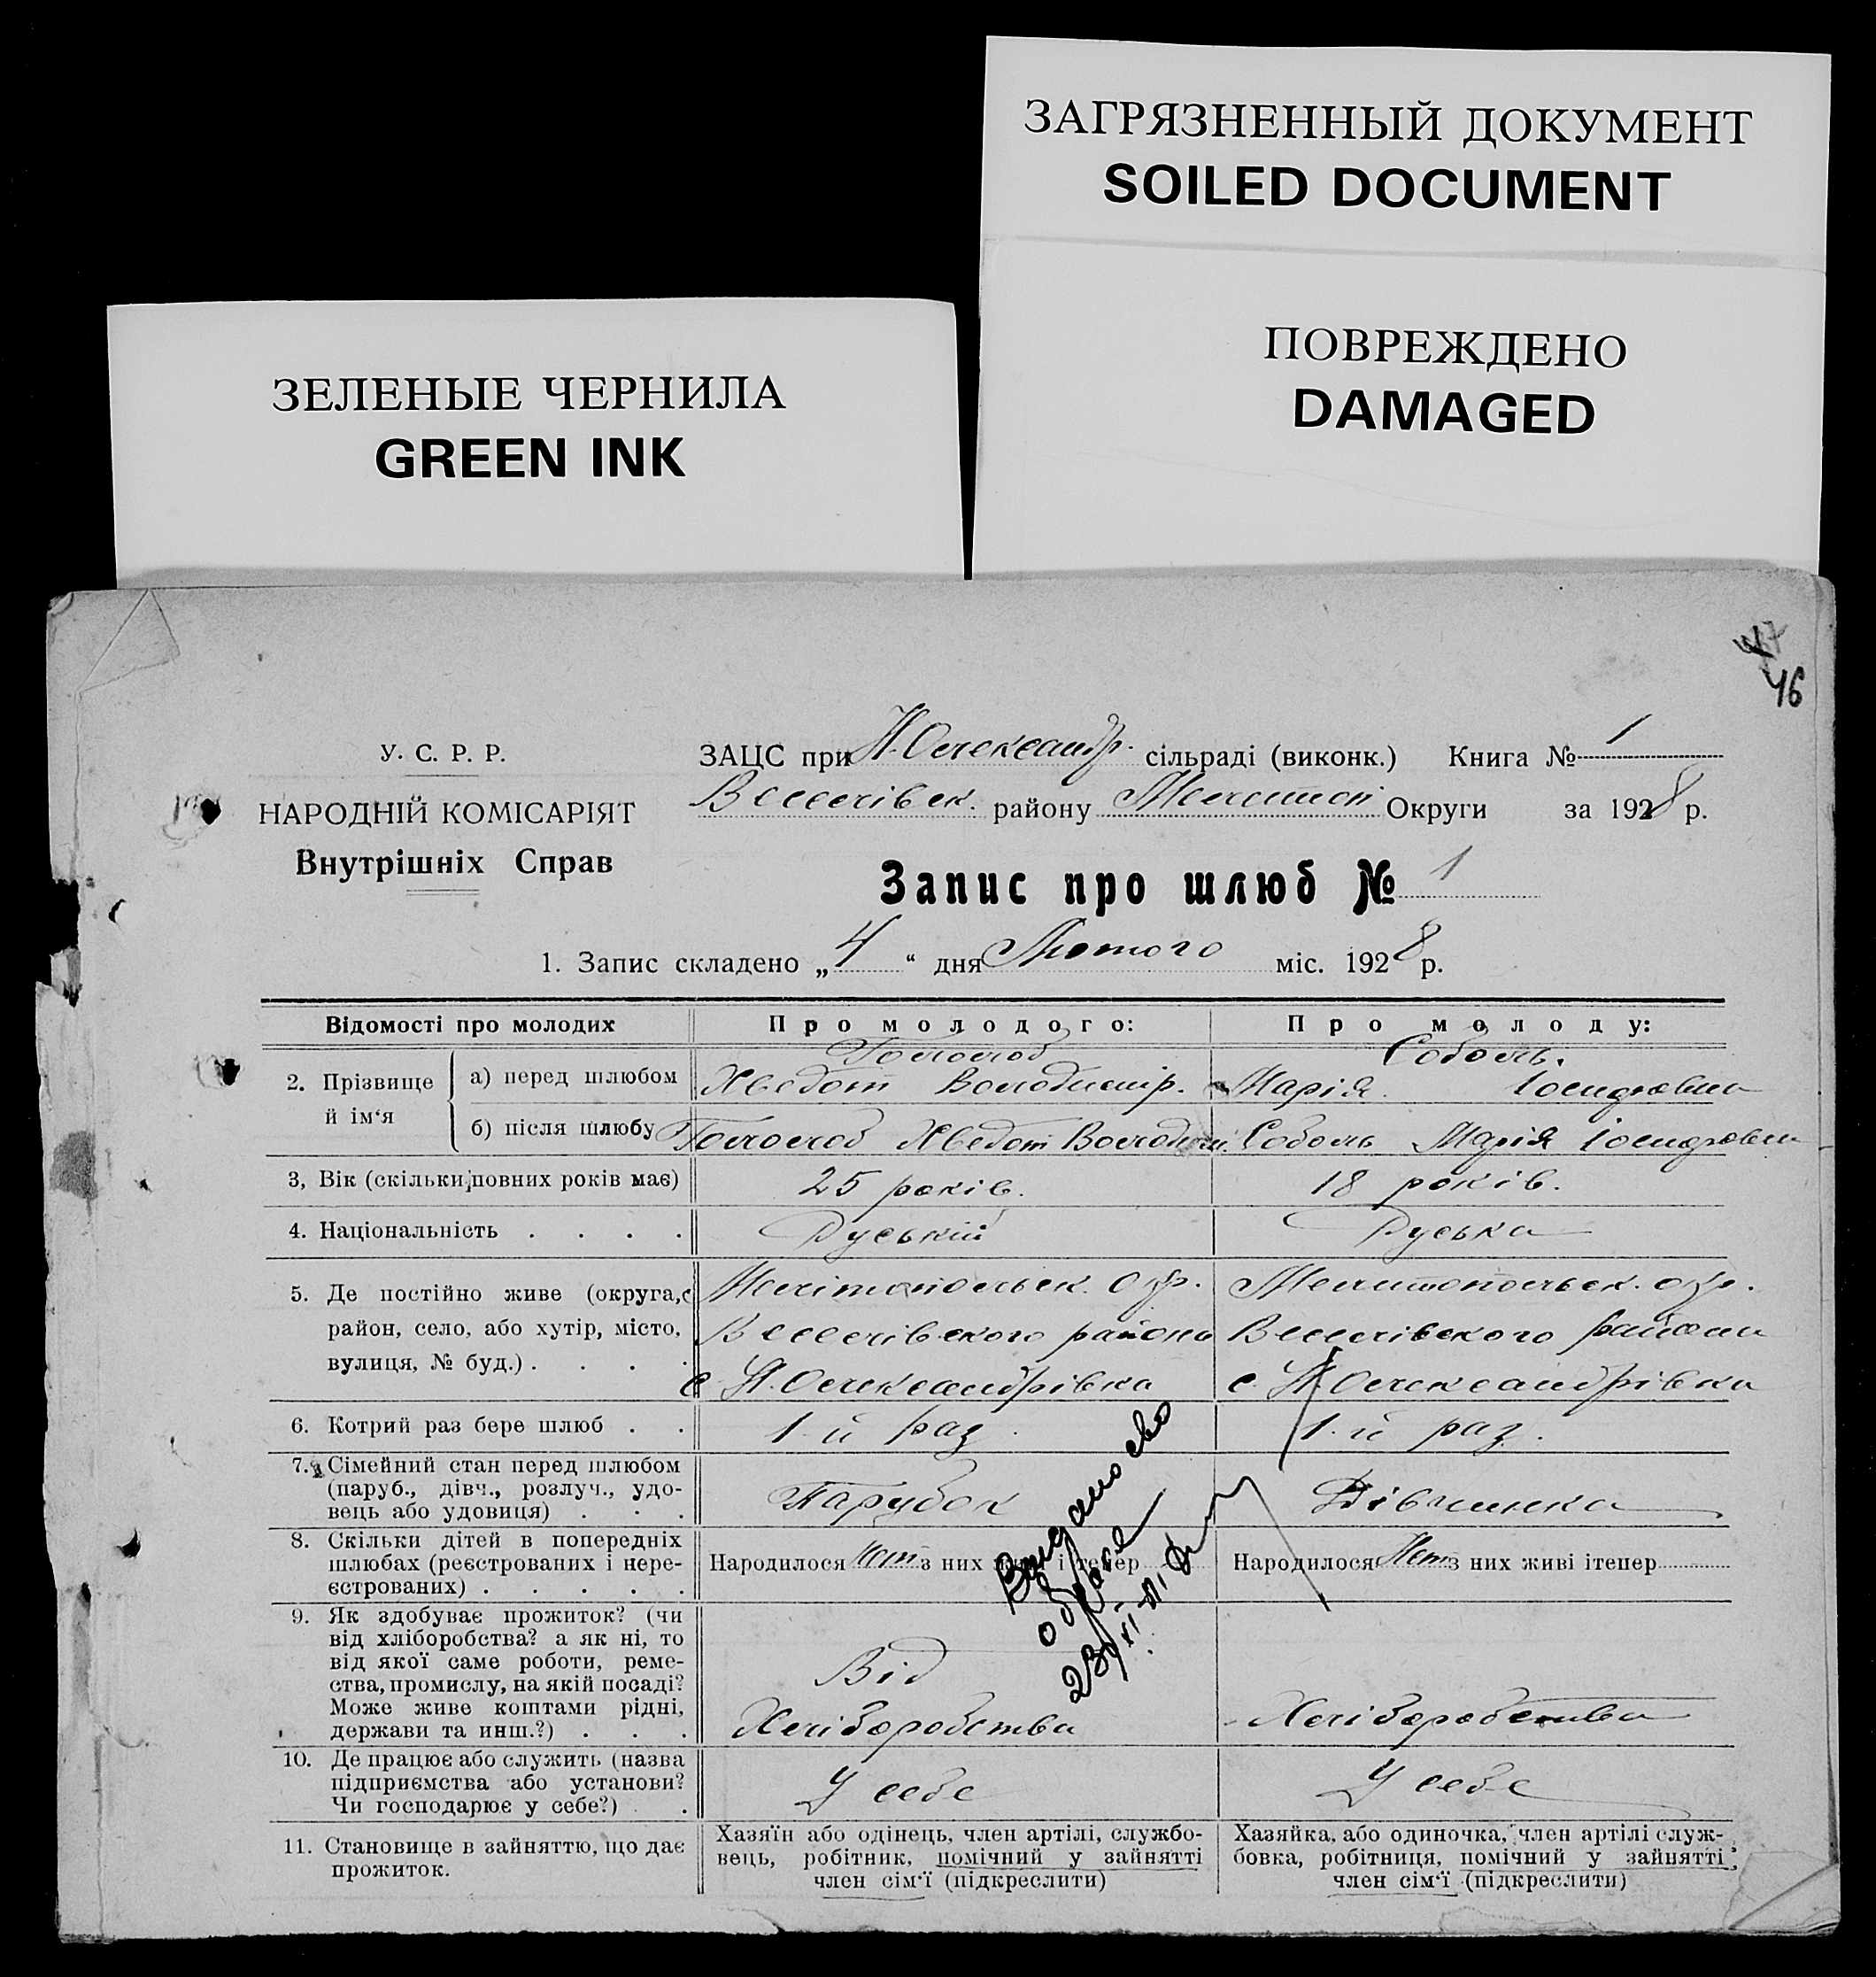 ЗАГРЯЗНЕННЫЙ ДОКУМЕНТ
SOILED DOCUMENT
ПОВРЕЖДЕНО
DAMAGED
ЗЕЛЕНЫЕ ЧЕРНИЛА
GREEN INK
47
46
У. С. Р. Р.
НАРОДНІЙ КОМІСАРІЯТ
Внутрішніх Справ
ЗАЦС при Н. Олександр. сільраді (виконк.) Книга № 1
Веселівск. району Мелитоп. Округи за 1928 р.
Запис про шлюб № 1
1. Запис складено „4“ дня Лютого міс. 1928 р.
Відомості про молодих
Про молодого:
Про молоду:
2. Прізвище й ім‘я
а) перед шлюбом
Голослоб
Хведот Володимир.
Соболь.
Марія Іосиповна
б) після шлюбу
Голослоб Хведот Володим.
Соболь Марія Іосиповна
3, Вік (скільки повних років має)
25 років.
18 років.
4. Національність . . . .
Руський
Руська
5. Де постійно живе (округа,
район, село, або хутір, місто,
вулиця, № буд.) . . . .
Мелітопольск. окр.
Веселівского района
с. Н. Олександрівка
Мелитопольск. окр.
Веселівского района
с. Н. Олександрівка
6. Котрий раз бере шлюб . .
1-й раз.
1-й раз.
7. Сімейний стан перед шлюбом
(паруб., дівч., розлуч., удо-
вець або удовиця) . . .
Парубок
Дівчинка
8. Скільки дітей в попередніх
шлюбах (реєстрованих і нере-
єстрованих) . . . . .
Народилося Нет з них живі і тепер
Народилося Нет з них живі ітепер
9. Як здобуває прожиток? (чи
від хліборобства? а як ні, то
від якої саме роботи, реме-
ства, промислу, на якій посаді?
Може живе коштами рідні,
держави та инш.?) . . .
Від
Хліборобства
Хліборобства
10. Де працює або служить (назва
підприємства або установи?
Чи господарює у себе?) .
У себе
У себе
11. Становище в зайняттю, що дає
прожиток.
Хазяїн або одінець, член артілі, службо-
вець, робітник, помічний у зайнятті
член сім‘ї (підкреслити)
Хазяйка, або одиночка, член артілі служ-
бовка, робітниця, помічний у зайнятті
член сім‘ї (підкреслити)
Выдано сво
о браке